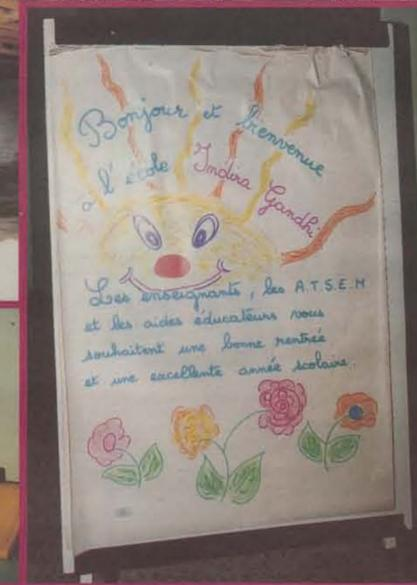 Bonjour et bienvenue
à l'école Indira Gandhi
Les enseignants, les A.T.S.E.M
et les aides éducateurs vous
souhaitent une bonne rentrée
et une excellente année scolaire.